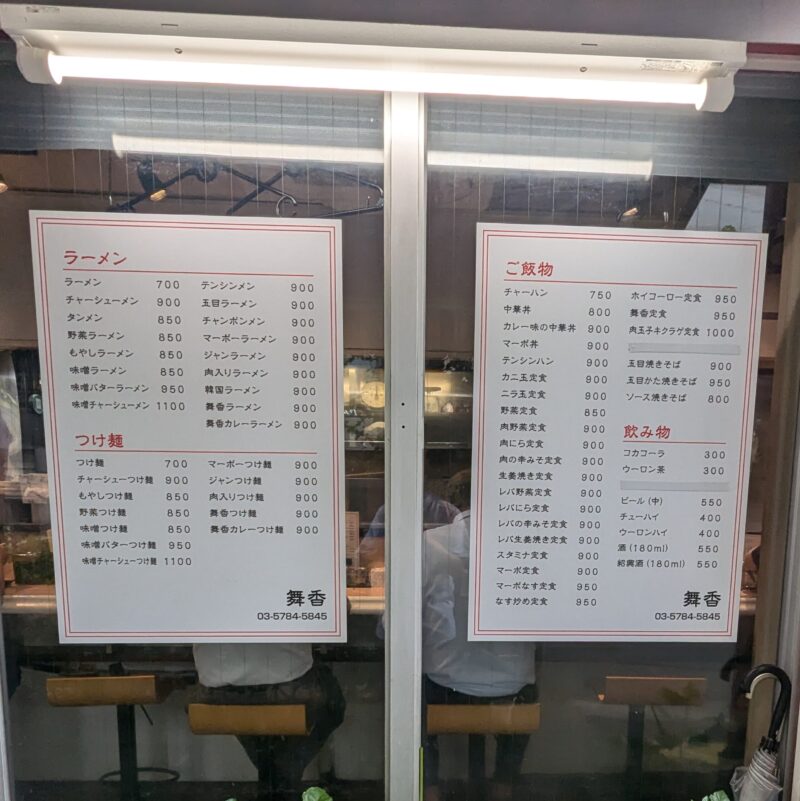 ラーメン
ラーメン 700
チャーシューメン 900
タンメン 850
野菜ラーメン 850
もやしラーメン 850
味噌ラーメン 850
味噌バターラーメン 950
味噌チャーシューメン 1100
テンシンメン 900
五目ラーメン 900
チャンポンメン 900
マーボーラーメン 900
ジャンラーメン 900
肉入りラーメン 900
韓国ラーメン 900
舞香ラーメン 900
舞香カレーラーメン 900
つけ麺
つけ麺 700
チャーシューつけ麺 900
もやしつけ麺 850
野菜つけ麺 850
味噌つけ麺 850
味噌バターつけ麺 950
味噌チャーシューつけ麺 1100
マーボーつけ麺 900
ジャンつけ麺 900
肉入りつけ麺 900
舞香つけ麺 900
舞香カレーつけ麺 900
舞香
03-5784-5845
ご飯物
チャーハン 750
中華丼 800
カレー味の中華丼 900
マーボ丼 900
テンシンハン 900
カニ玉定食 900
ニラ玉定食 900
野菜定食 850
肉野菜定食 900
肉にら定食 900
肉の辛みそ定食 900
生姜焼き定食 900
レバ野菜定食 900
レバにら定食 900
レバの辛みそ定食 900
レバ生姜焼き定食 900
スタミナ定食 900
マーボ定食 900
マーボなす定食 950
なす炒め定食 950
ホイコーロー定食 950
舞香定食 950
肉玉子キクラゲ定食 1000
五目焼きそば 900
五目かた焼きそば 950
ソース焼きそば 800
飲み物
コカコーラ 300
ウーロン茶 300
ビール(中) 550
チューハイ 400
ウーロンハイ 400
酒(180ml) 550
紹興酒(180ml) 550
舞香
03-5784-5845